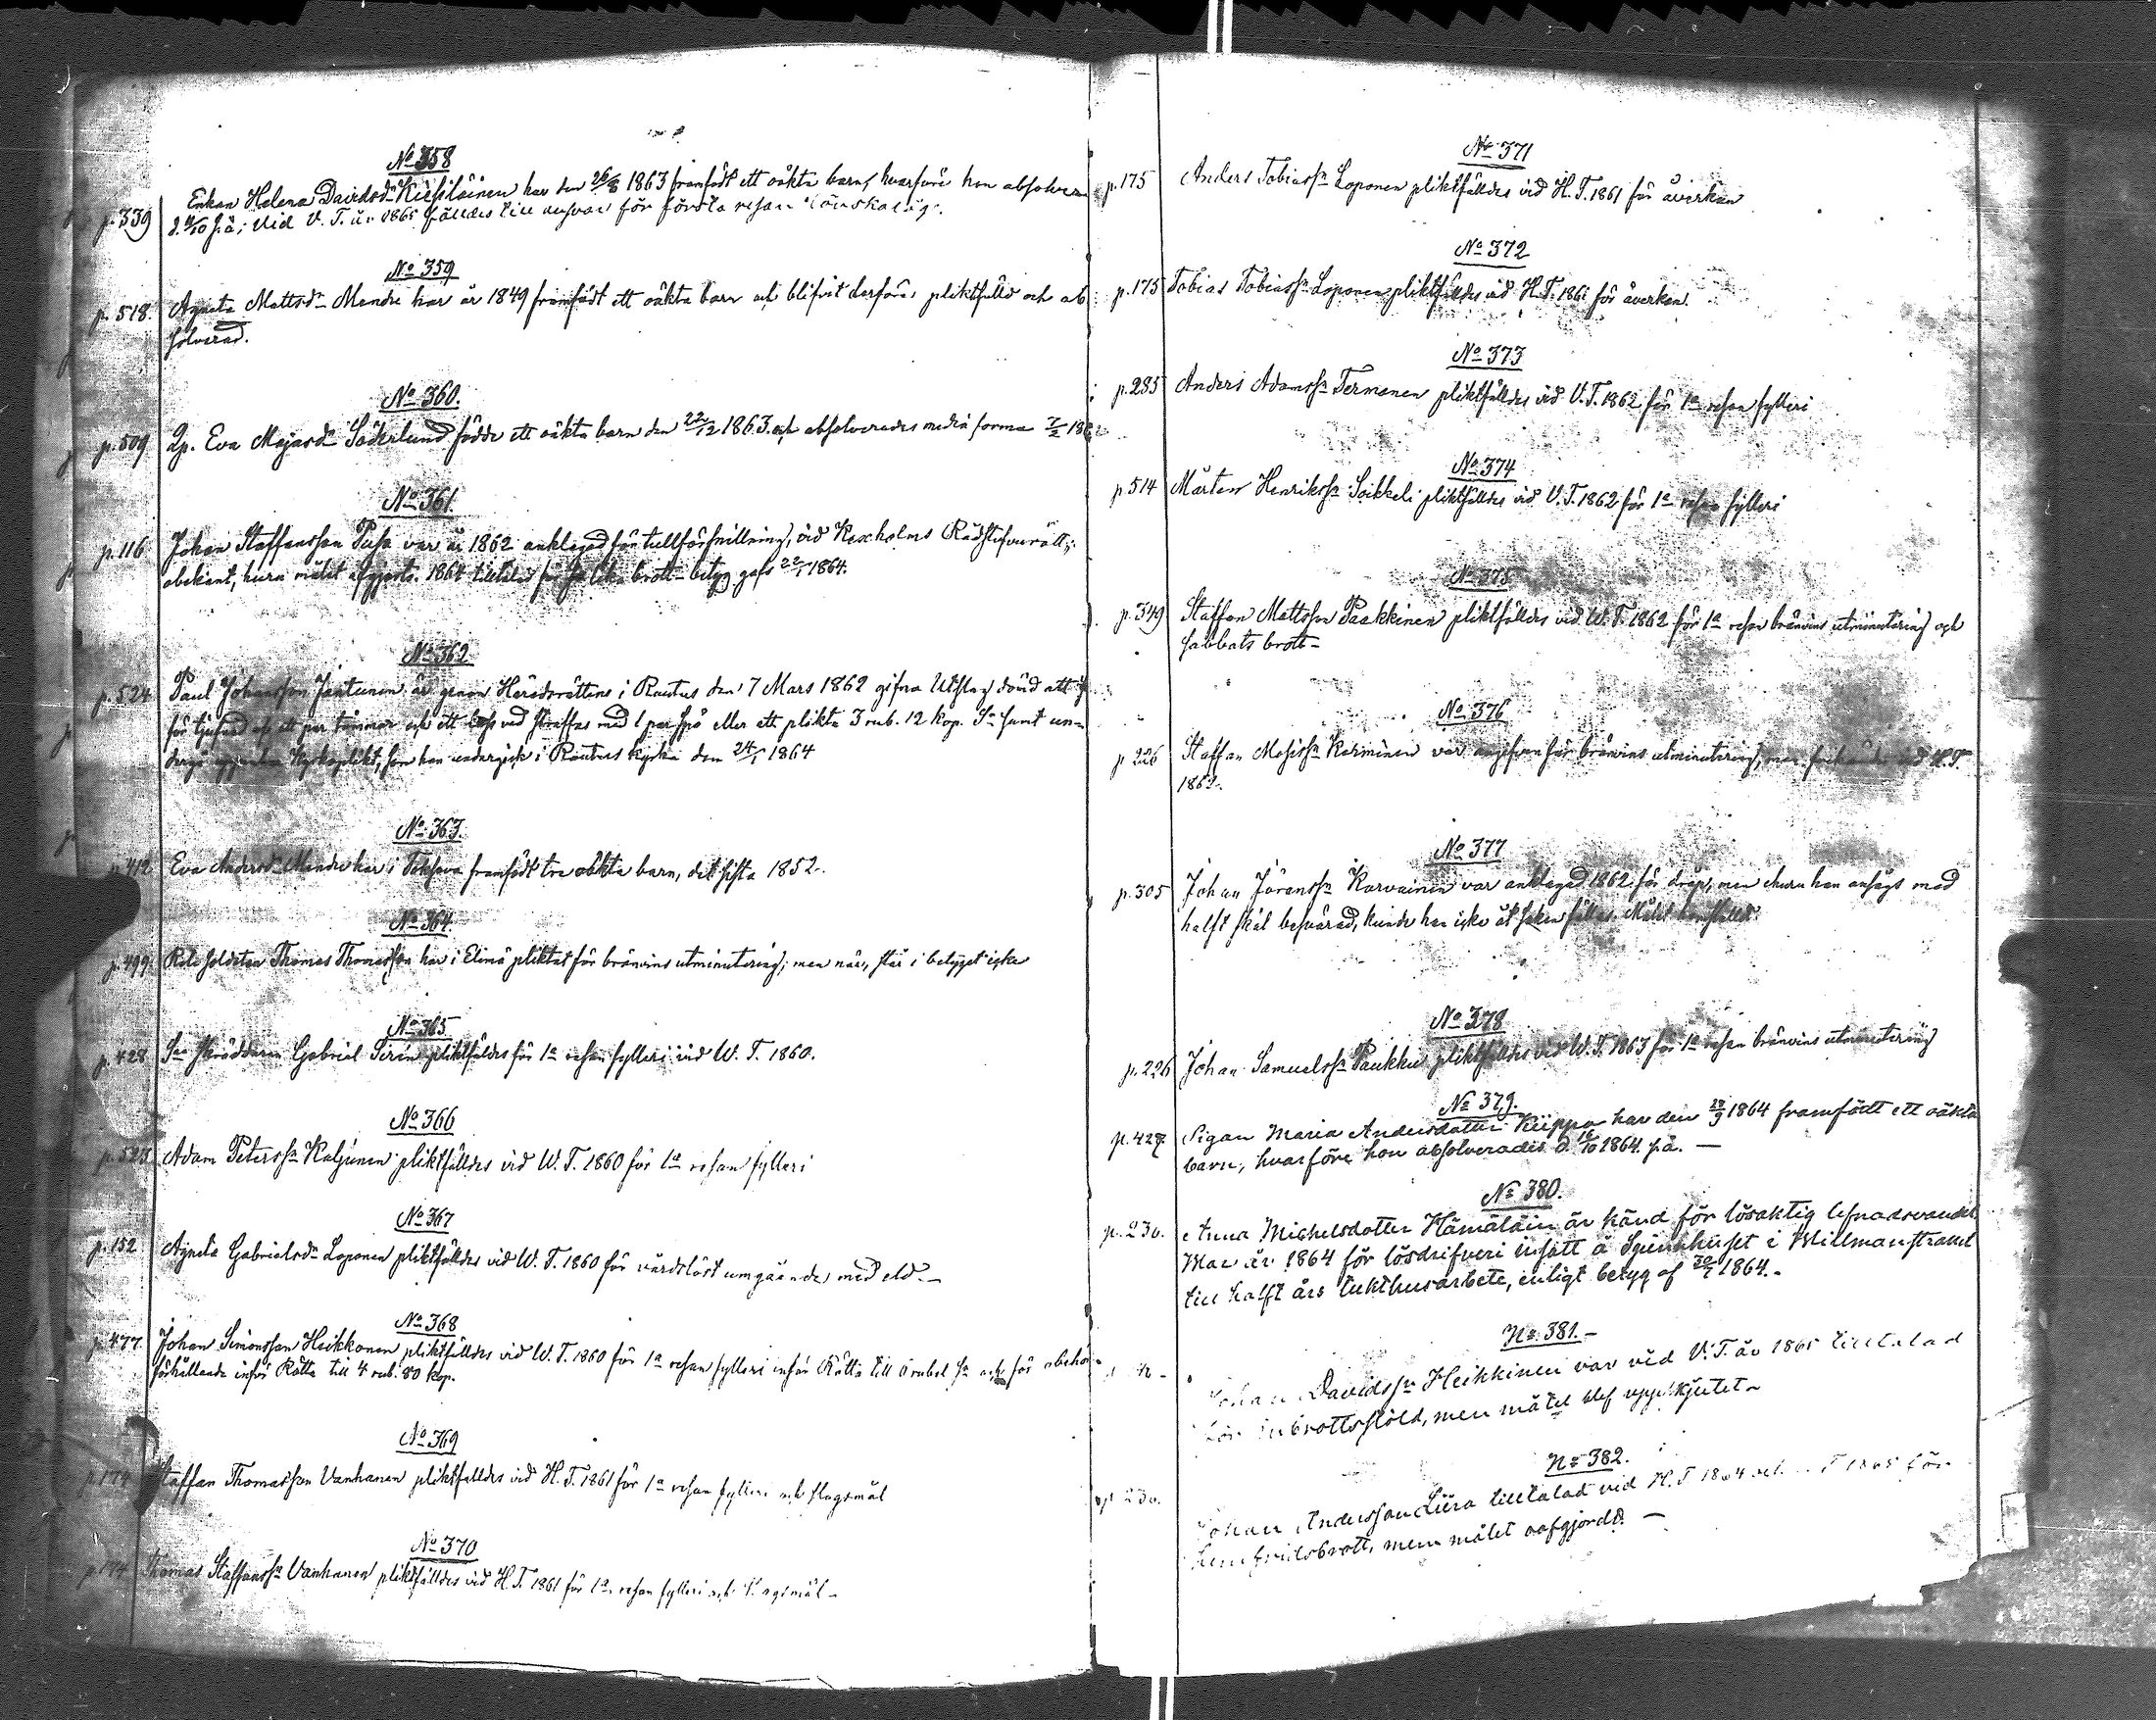 No 358
p. 339 Enkan Helena Davidsdr har den 26/8 1863 framfödt ett oäkta barn, hvarföre hon absolver
vid V. T. år 1865 fälldes till ansvar för första resan lönskaläge.
No 359
p. 518 Agneta Mattsdr Mandre har år 1849 framfödt ett oäkta barn och blifvit derföre pliktfälld och ab
solverad.
No 360.
p. 509 Qp. Eva Majasdr Söderlund födde ett oäkta barn den 22/12 1863 och absolverades media forma
No 361.
p. 116 Johan Staffansson Pusa var år 1862 anklagad för tullförsnillning, vid Kexholms Rådstufvurätt;
obekant, huru målet afgjorts. 1864 tilltalad för brott - betyg gafs 1864.
No 362
p. 524 Paul Johansson Jantunen är genom Häradsrättens i Rautus den 7 Mars 1862 gifna Utslag dömd att
för tjufnad af ett par tömmar och ett lass ved straffas med 1 par spö eller ett plikta 3 rub. 12 kop. Sr samt un-
dergå uppenbar Kyrkoplikt, som han undergick i Rautus kyrka den 24/1 1864
No 363.
p. 412 Eva Andersdr Mandre har i framfödt tre oäkta barn, det sista 1852.
No 364.
p. 499 Rote soldaten Thomas Thomasson har i Elimä pliktat för bränvins utminutering; men när, står i betyget icke
No 365
p. 428 skräddaren Gabriel Serén pliktfäldes för 1a resan fylleri vid W. T. 1860.
No 366
p. 525 Adam Peterssn Kaljunen pliktfälldes vid W. T. 1860 för 1a resan fylleri
No 367
p. 152 Agneta Gabrielsdr Loponen pliktfälldes vid W. T. 1860 för vårdslöst umgående med eld. -
No 368
p. 477. Johan Simonsson Heikkonen pliktfälldes vid W. T. 1860 för 1a resan fylleri inför Rätta till rubel Sr och för obehö-
förhållande inför Rätta till 4 rub. 80 kop.
No 369
p. 174 Staffan Thomasson Vanhanen pliktfälldes vid H. T. 1861 för 1a resan fylleri och slagsmål
No 370
p. 174 Thomas Staffanssn Vanhanen pliktfälldes vid H. T. 1861 för 1a resan fylleri och slagsmål -
No 371
p. 175 Anders Tobiassn Loponen pliktfälldes vid H. T. 1861 för åverkan
No 372
p. 175 Tobias Tobiassn Loponen pliktfälldes vid H. T. 1861 för åverkan.
No 373
p. 285 Anders Adamssn Termonen pliktfälldes vid V. T. 1862 för 1a resan fylleri
No 374
p. 514 Mårten Henrikssn Soikkeli pliktfälldes vid V. T. 1862 för 1a resan fylleri
No 375
p. 349 Staffan Mattsson Paakkinen pliktfälldes vid W. T. 1862 för 1a resan bränvins utminutering och
sabbats brott -
No 376
p 226 Staffan Mosissn Karminen var angifven för bränvins utminutering, men
1862.
No 377
p. 305 Johan Jöranssn Karvainen var anklagad 1862 för dråp, men ehuru han ansågs med
halft skäl besvärad, kunde han icke åt saken fällas. Målet hemställdt
No 378
p. 226 Johan Samuelssn Paukku pliktfälldes vid W. T. 1863 för 1a resan bränvins utminutering
No 379.
p. 427. Pigan Maria Andersdotter Kiippa har den 28/9 1864 framfödt ett oäkta
barn, hvarföre hon absolverades d. 16/10 1864. s.å. —
No 380.
p. 230. Anna Michelsdotter Hämäläin är känd för lösaktig lefnadsvandel
Mac år 1864 för lösdrifveri insatt å Spinnhuset i Willmanstrand
till halft års tukthusarbete, enligt betyg af 1864. -
No 381. -
Johan Davidssn Heikkinen var vid V. T. år 1865 tilltalad
för inbrottsstöld, men målet blef uppskjutet -
No 382.
p. 230. Johan Andersson Liira tilltalad vid H. T 1864 och T 1865 för
hemfridsbrott, men målet oafgjordt. —